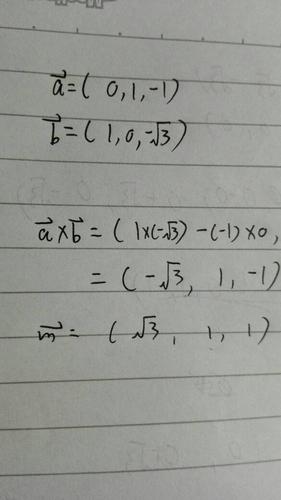 a⃗=( 0,1,-1)
b⃗=( 1,0,-√3)
a⃗×b⃗=( 1×(-√3) -(-1)×0,
=(-√3, 1,-1)
m⃗= (√3, 1, 1)